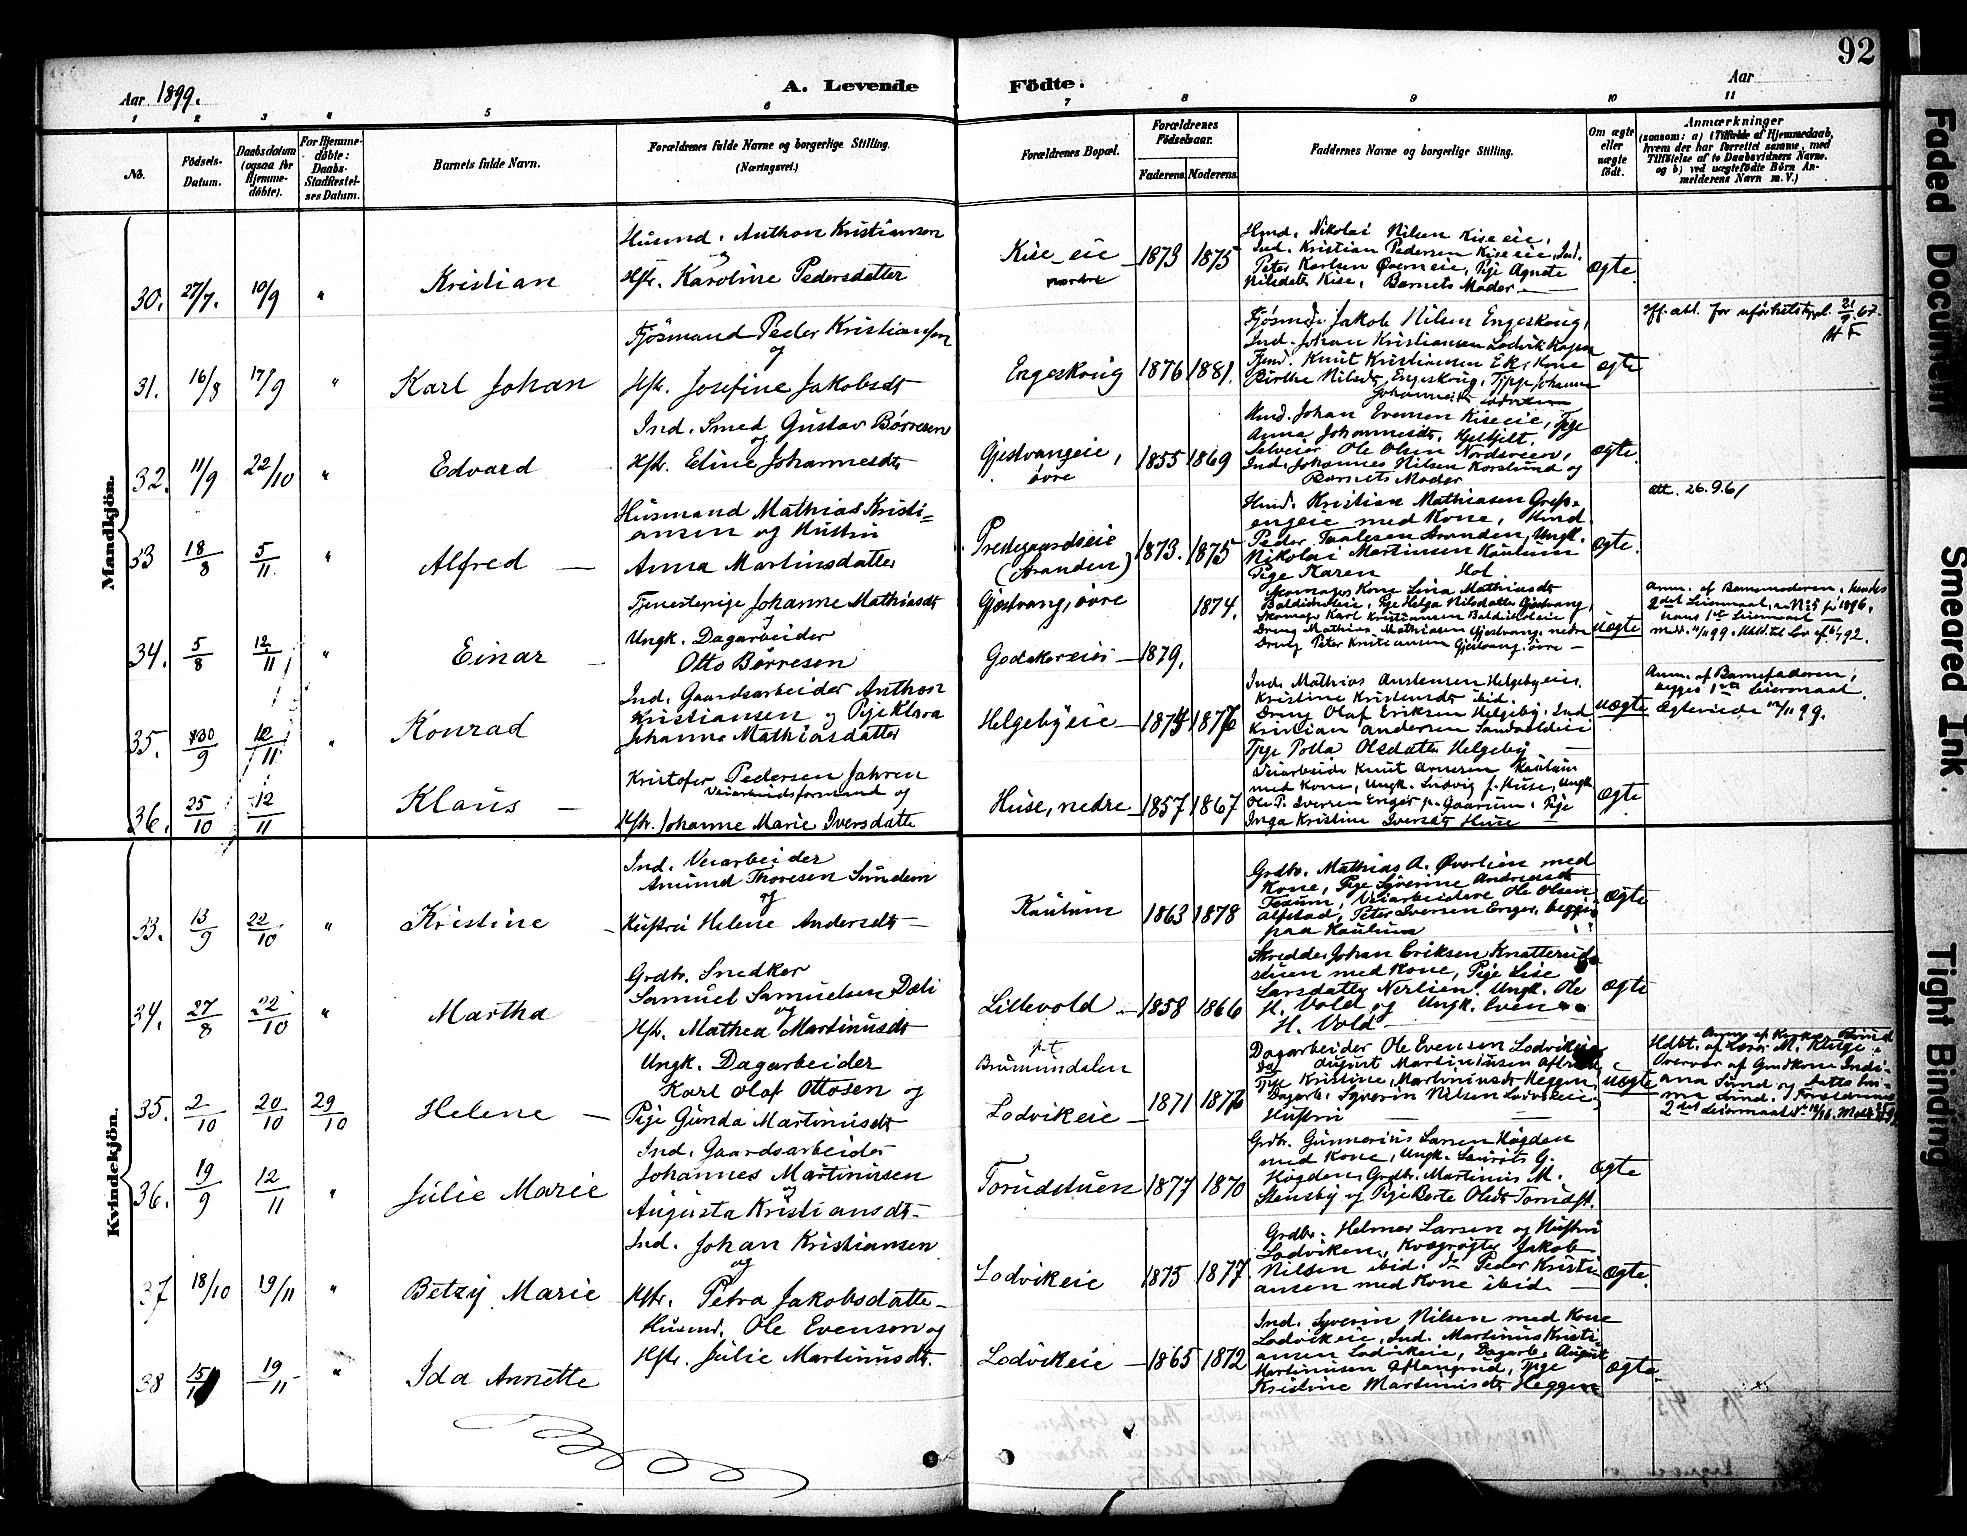 92
Aar 1899.
A. Levende Födte.
Aar
1 2 3 4 5 6 7 8 9 10 11
No.
Födsels-Datum.
Daabsdatum (ogsaa for Hjemmedöbte).
For Hjemmedöbte: Daabs-Stadfæstelses Datum.
Barnets fulde Navn.
Forældrenes fulde Navne og borgerlige Stilling.
(Næringsvei.)
Forældrenes Bopæl.
Forældrenes Födselsaar.
Faderens. Moderens.
Faddernes Navne og borgerlige Stilling.
Om ægte eller uægte födt.
Anmærkninger
(saasom: a) i Tilfælde af Hjemmedaab, hvem der har forrettet samme, med Tilföielse af to Daabsvidners Navne, og b) ved uægtefödte Börn Anmelderens Navn m. V.)
Mandkjön.
30. 27/7. 10/9 "
Kristian
Husmd. Anthon Kristiansen
og
Hstr. Karoline Pedersdatter
Kise-eie
nordre
1873 1875
Hmd. Nikolai Nilsen Kiseeie,
Ind. Kristian Pedersen Kiseeie, Ind.
Peter Karlsen Øverneie, Pije Agnete
Nilsdatr Kise, Barnets Moder
ægte.
31. 16/8 17/9 "
Karl Johan
Fjösmand Peder Kristiansen
og
Hstr. Josefine Jakobsdt
Engeskoug
1876 1881.
Fjösmd. Jakob Nilsen Engeskoug,
Ind. Johan Kristiansen Lodvik
Knut Kristiansen Ek, Kone
Birthe Nilsdt Engeskoug, Johanne
ægte
att. for uførhetstrygd. 21/9.67.
32. 11/9 22/10 "
Edvard
Ind. Smed Gustav Børresen
og
Hstr. Eline Johannesdtr
Gjestvangeie,
övre
1855 1869
Hmd. Johan Evensen Kiseeie, Pije
Anna Johannesdtr,
Selveier Ole Olsen Nordsveen,
Ind. Johannes Nilsen Korslund og
Barnets Moder
ægte.
33 18/8 5/11. "
Alfred
Husmand Mathias Kristi=
ansen og Hustru
Anna Martinsdatter
Prestegaardseie
(Stranden)
1873. 1875
Hmd. Kristian Mathiasen Grefs-
engeie med Kone, Hmd.
Peder Stranden, Ungk.
Nikolai Martinsen Kaulum
Pige Karen Hol
ægte.
att. 26.9.61
34. 5/8 12/11 "
Einar
Tjenestepige Johanne Mathiasdt
og
Ungk. Dagarbeider
Otto Børresen
Gjestvang, övre
Godakereie
1879. 1874.
Skomager Kone Lina Mathiasdt
Baldishol­eie, Pije Helga Nilsdatter Gjestvang,
Skomager Karl Kristiansen Baldisholeie
Dreng Mathias Mathiasen Gjestvang nedre
Dreng Peter Kristiansen Gjestvang övre
uægte
Anm. af Barnemoderen, hendes
2det Leiermaal, No 5 for 1896,
hans 1ste Leiermaal
35. 30/9 12/11 "
Konrad
Ind. Gaardsarbeider Anthon
Kristiansen og Pije Klara
Johanna Mathiasdatter
Helgebyeie
1874 1876
Ind. Mathias Helgebyeie,
Kristine ibid.
Dreng Olaf Eriksen Helgeby, Ind
Kristian Andersen Sandvoldeie
Pije Olsdatter Helgeby
uægte
Anm. af Barnefaderen,
begges 1ste Leiermaal.
Ægteviede 12/11 99.
36. 25/10 12/11
Klaus
Kristofer Pedersen Jahren
Veiarbeidsformand og
Hstr. Johanne Marie Iversdatter
Huse, nedre
1857 1867
Veiarbeider Knut Arnesen Kaulum
med Kone, Ungk. Ludvig P. Huse, Ungk
Ole P. Iversen Enger p. Gaarum, Pije
Inga Kristine Iversdt Huse
ægte
Kvindekjön.
33. 13/9 22/10 "
Kristine
Ind. Veiarbeider
Amund Thoresen Sundem
og
Hustru Helene Andersdt
Kaulum
1863 1878
Grdbr. Mathias A. Øverlien med
Kone, Pije Syverine Andreasdt
Veiarbeidere Ole Olsen
Alfstad, Peter Iversen Enger, begge
paa Kaulum
ægte
34. 27/8 22/10 "
Martha
Grdbr. Snedker
Samuel Samuelsen Dæli
og
Hstr. Mathea Martinusdt
Lillevold
1858 1866
Skredder Johan Eriksen Knatterud-
stuen med Kone, Pije Lise
Larsdatter Nerlien, Ungk. Ole
H. Vold og Ungk. Even
H. Vold
ægte
35. 2/10 20/10 29/10
Helene
Ungk. Dagarbeider
Karl Olaf Ottosen og
Pije Gunda Martinusdt
p.t
Brumundalen
Lodvikeie
1871 1876
Dagarbeider Ole Evensen Lodvikeie
August Martiniusen
Pije Kristine Martiniusdt Heggen,
Dagarb. Syverin Nilsen Lodvikeie
Hustru
uægte
Hdbt. af Lærer M. Kluge
Overvær af Grdkone Indi-
ana Sund og Jette
Sund.
2det Leiermaal
36. 19/9 12/11 "
Julie Marie
Ind. Gaardsarbeider
Johannes Martinusen
og
Augusta Kristiansdt
Torudstuen
1877 1870
Grdbr. Gunnerius Larsen Høgden
med Kone, Ungk. Laurits G.
Høgden, Grdbr. Martinus M.
Stensby og Pije Berte Olsdt Torudst.
ægte
37 18/10 19/11 "
Betzy Marie
Ind. Johan Kristiansen
og
Hstr. Petra Jakobsdatter
Lodvikeie
1875 1877
Grdbr. Helmer Larsen og Hustru
Lodviken, Kvægrøgter Jakob
Nilsen ibid. Peder Kristi-
ansen med Kone ibid
ægte.
38 15/1 19/11 "
Ida Annette
Husmd. Ole Evensen og
Hstr. Julie Martinusdt.
Lodvikeie
1865 1872
Ind. Syverin Nilsen med Kone
Lodvikeie, Ind. Martinus Kristi-
ansen Lodvikeie, Dagarb. August
Martinusen Aflangrud, Pije
Kristine Martinusdt Heggen
ægte.
Faded Document
Smeared Ink.
Tight Binding